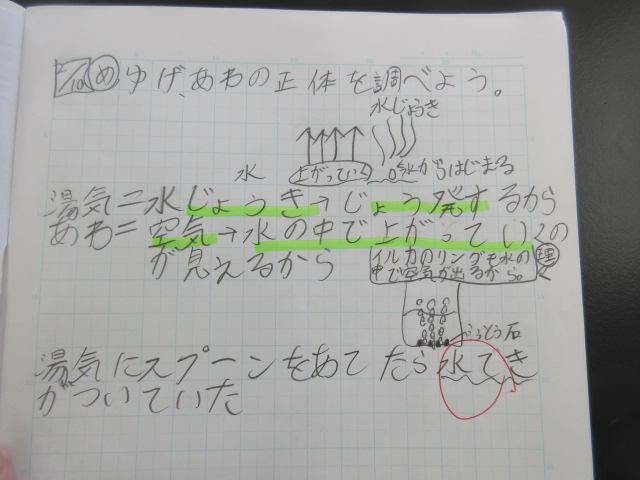 め ゆげ、あわの正体を調べよう。
水じょうき
上がっていく
水からはじまる
水
湯気=水じょうき→じょう発するから
あわ=空気→水の中で上がっていくの
が見えるから
理
イルカのリングも水の
中で空気が出るから。
ふっとう石
湯気にスプーンをあてたら水てき
がついていた